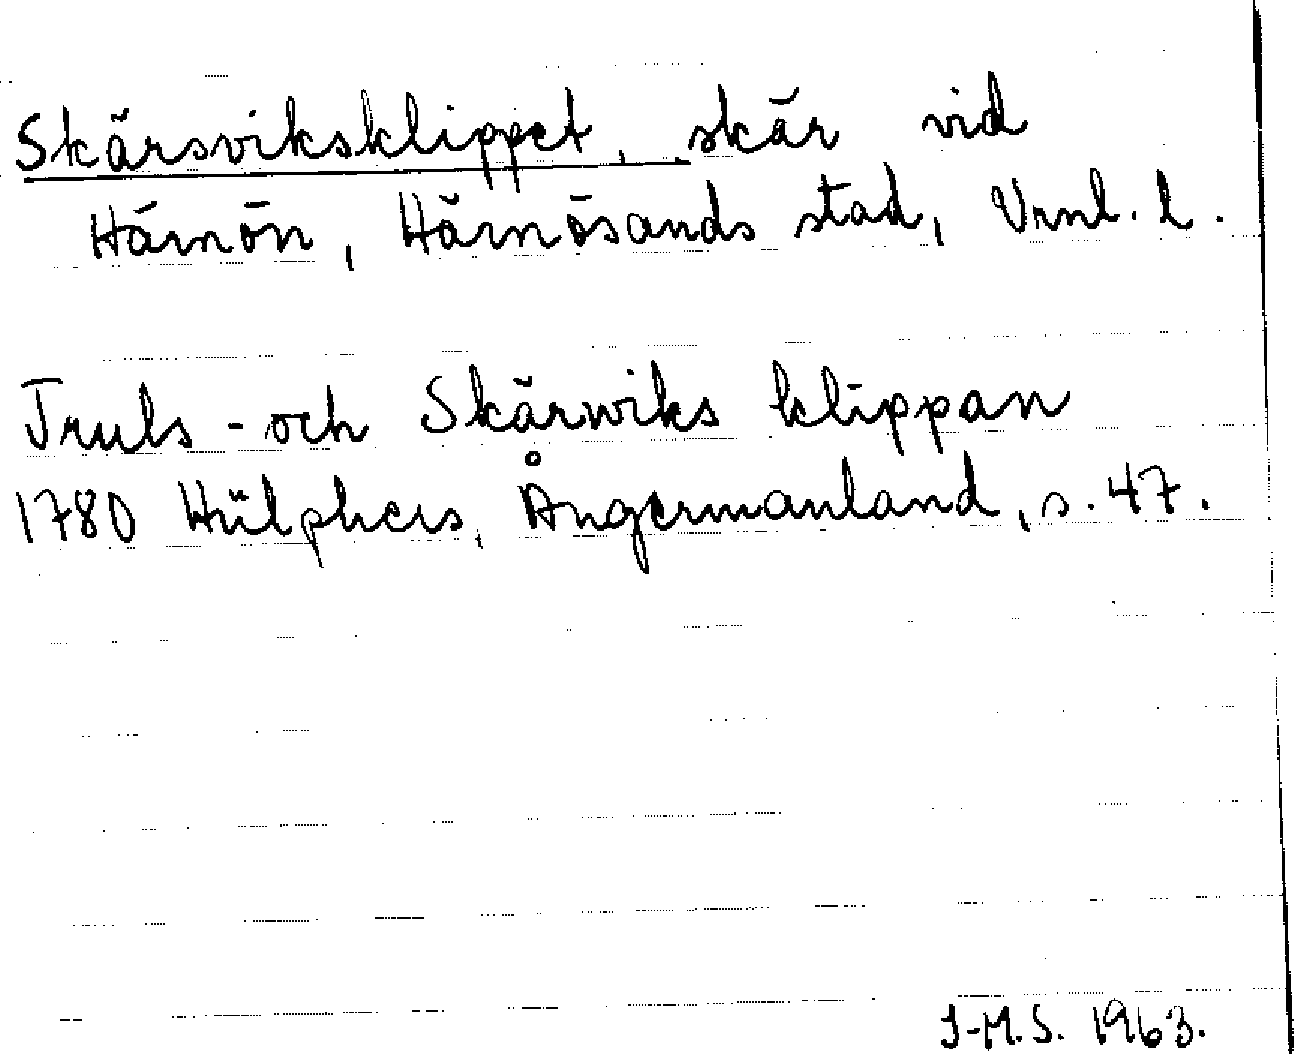 Skärsviksklippet, skär vid
Härnön, Härnösands stad, Vrnl. l.
Truls - och Skärwiks klippan
1780 Hülphers, Ångermanland, s. 47.
I-M.S. 1963.